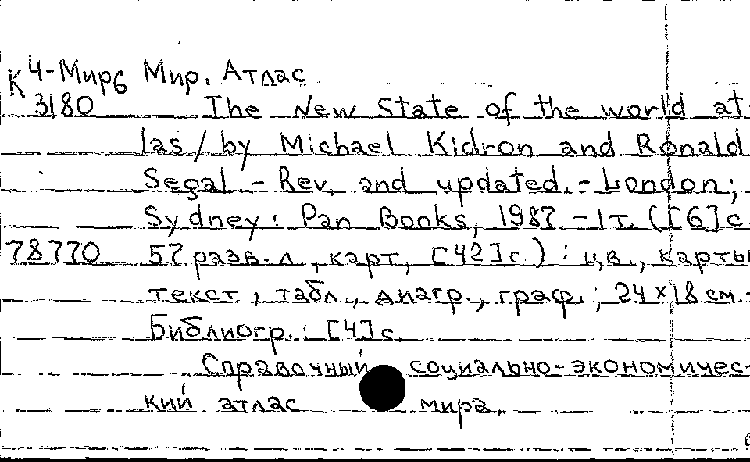 К 4-Мир6 Мир. Атлас
3180 The New State of the world at-
las / by Michael Kidron and Ronald
Segal - Rev. and updated. - London;
Sydney: Pan Books, 1987. - 1т. ([6]с
78770 57 разв. л., карт, [42]с.): цв., карты
текст, табл., диагр., граф.; 24 x 18 см -
Библиогр.: [4]с.
Справочный социально-экономичес-
кий атлас мира.